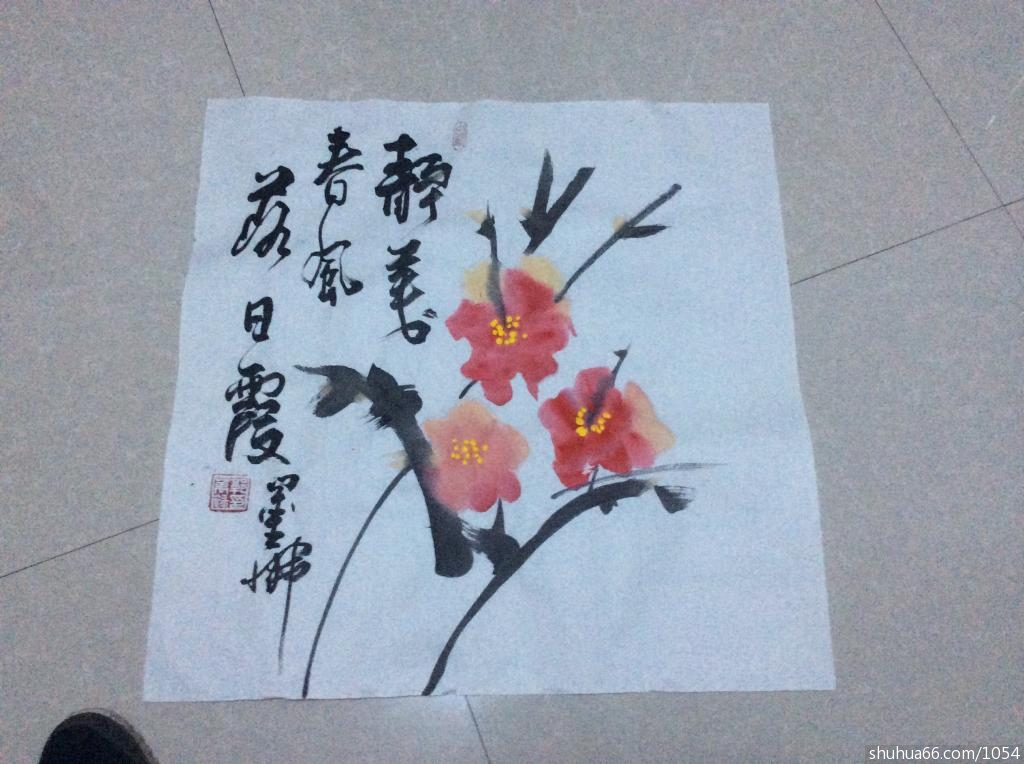 静美
春風
落日霞
墨
shuhua66.com/1054